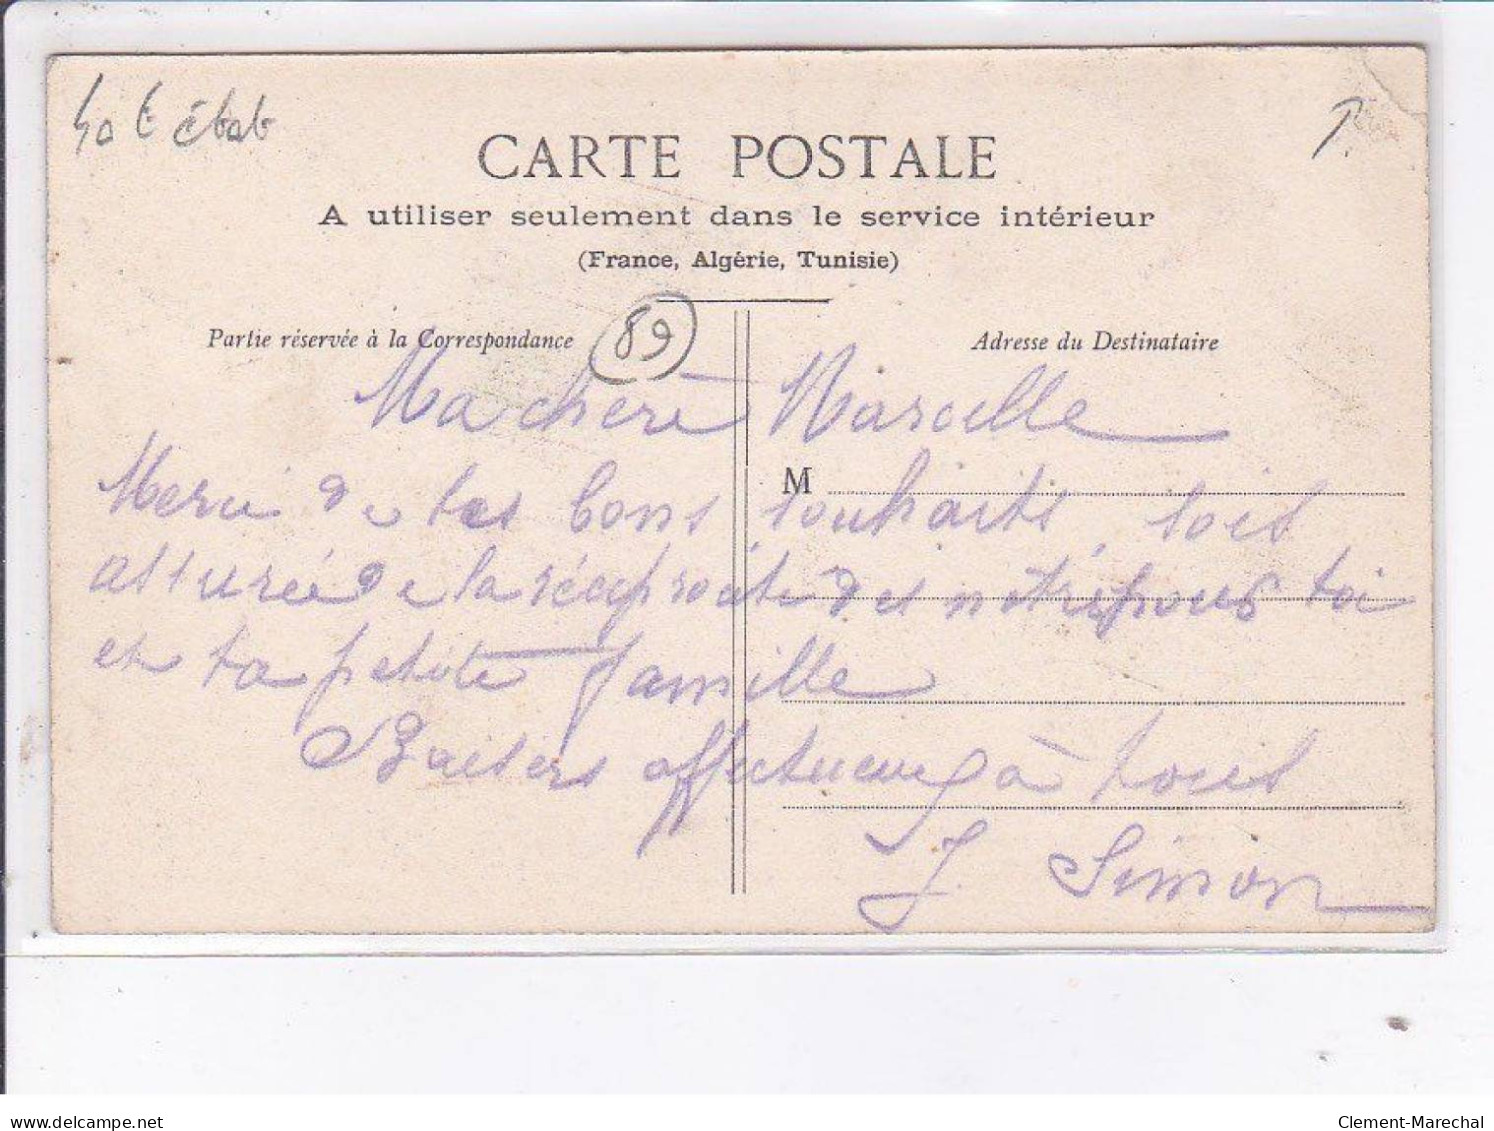 CARTE POSTALE
A utiliser seulement dans le service intérieur
(France, Algérie, Tunisie)
Partie réservée à la Correspondance
89
Adresse du Destinataire
Ma chere Marcelle
M
Merci de tes bons souhaits sois
assurée de la réciprocité des notres pour toi
et ta petite famille
Baisers affectueux à tous
J. Simon
delcampe.net
Clement-Marechal